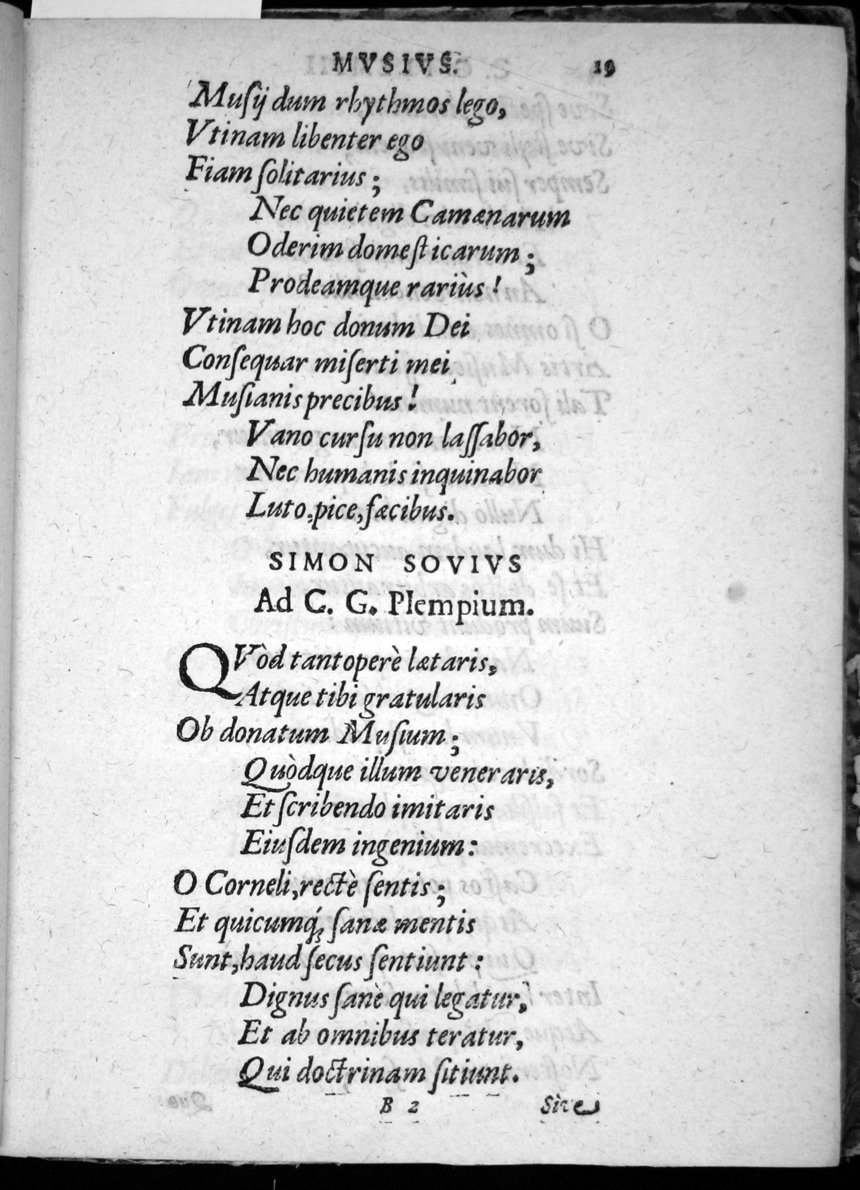 MVSIVS. 19
Musij dum rhythmos lego,
Vtinam libenter ego
Fiam ſolitarius;
Nec quietem Camænarum
Oderim domeſticarum;
Prodeamque rariùs!
Vtinam hoc donum Dei
Conſequar miſerti mei
Muſianis precibus!
Vano curſu non laſſabor,
Nec humanis inquinabor
Luto, pice, fæcibus.
SIMON SOVIVS
Ad C. G. Plempium.
QVòd tantoperè lætaris,
Atque tibi gratularis
Ob donatum Muſium;
Quòdque illum veneraris,
Et ſcribendo imitaris
Eiuſdem ingenium:
O Corneli, rectè ſentis;
Et quicumq́ꝫ ſanæ mentis
Sunt, haud ſecus ſentiunt:
Dignus ſanè qui legatur,
Et ab omnibus teratur,
Qui doctrinam ſitiunt.
B 2 Sive